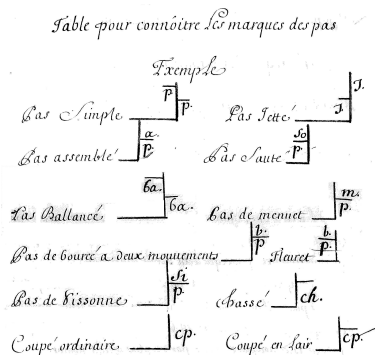 Table pour connôitre Les marques des pas
Exemple
Pas Simple p p.
Pas Jetté J. J.
Pas assemblé a. p.
Pas Sauté So p.
Pas Ballancé ba. ba.
Pas de menuet m. p.
Pas de bouréé a deux mouuements b. p.
fleuret b. p.
Pas de Sissonne Si p.
chassé ch.
Coupé ordinaire cp.
Coupé en lair cp.